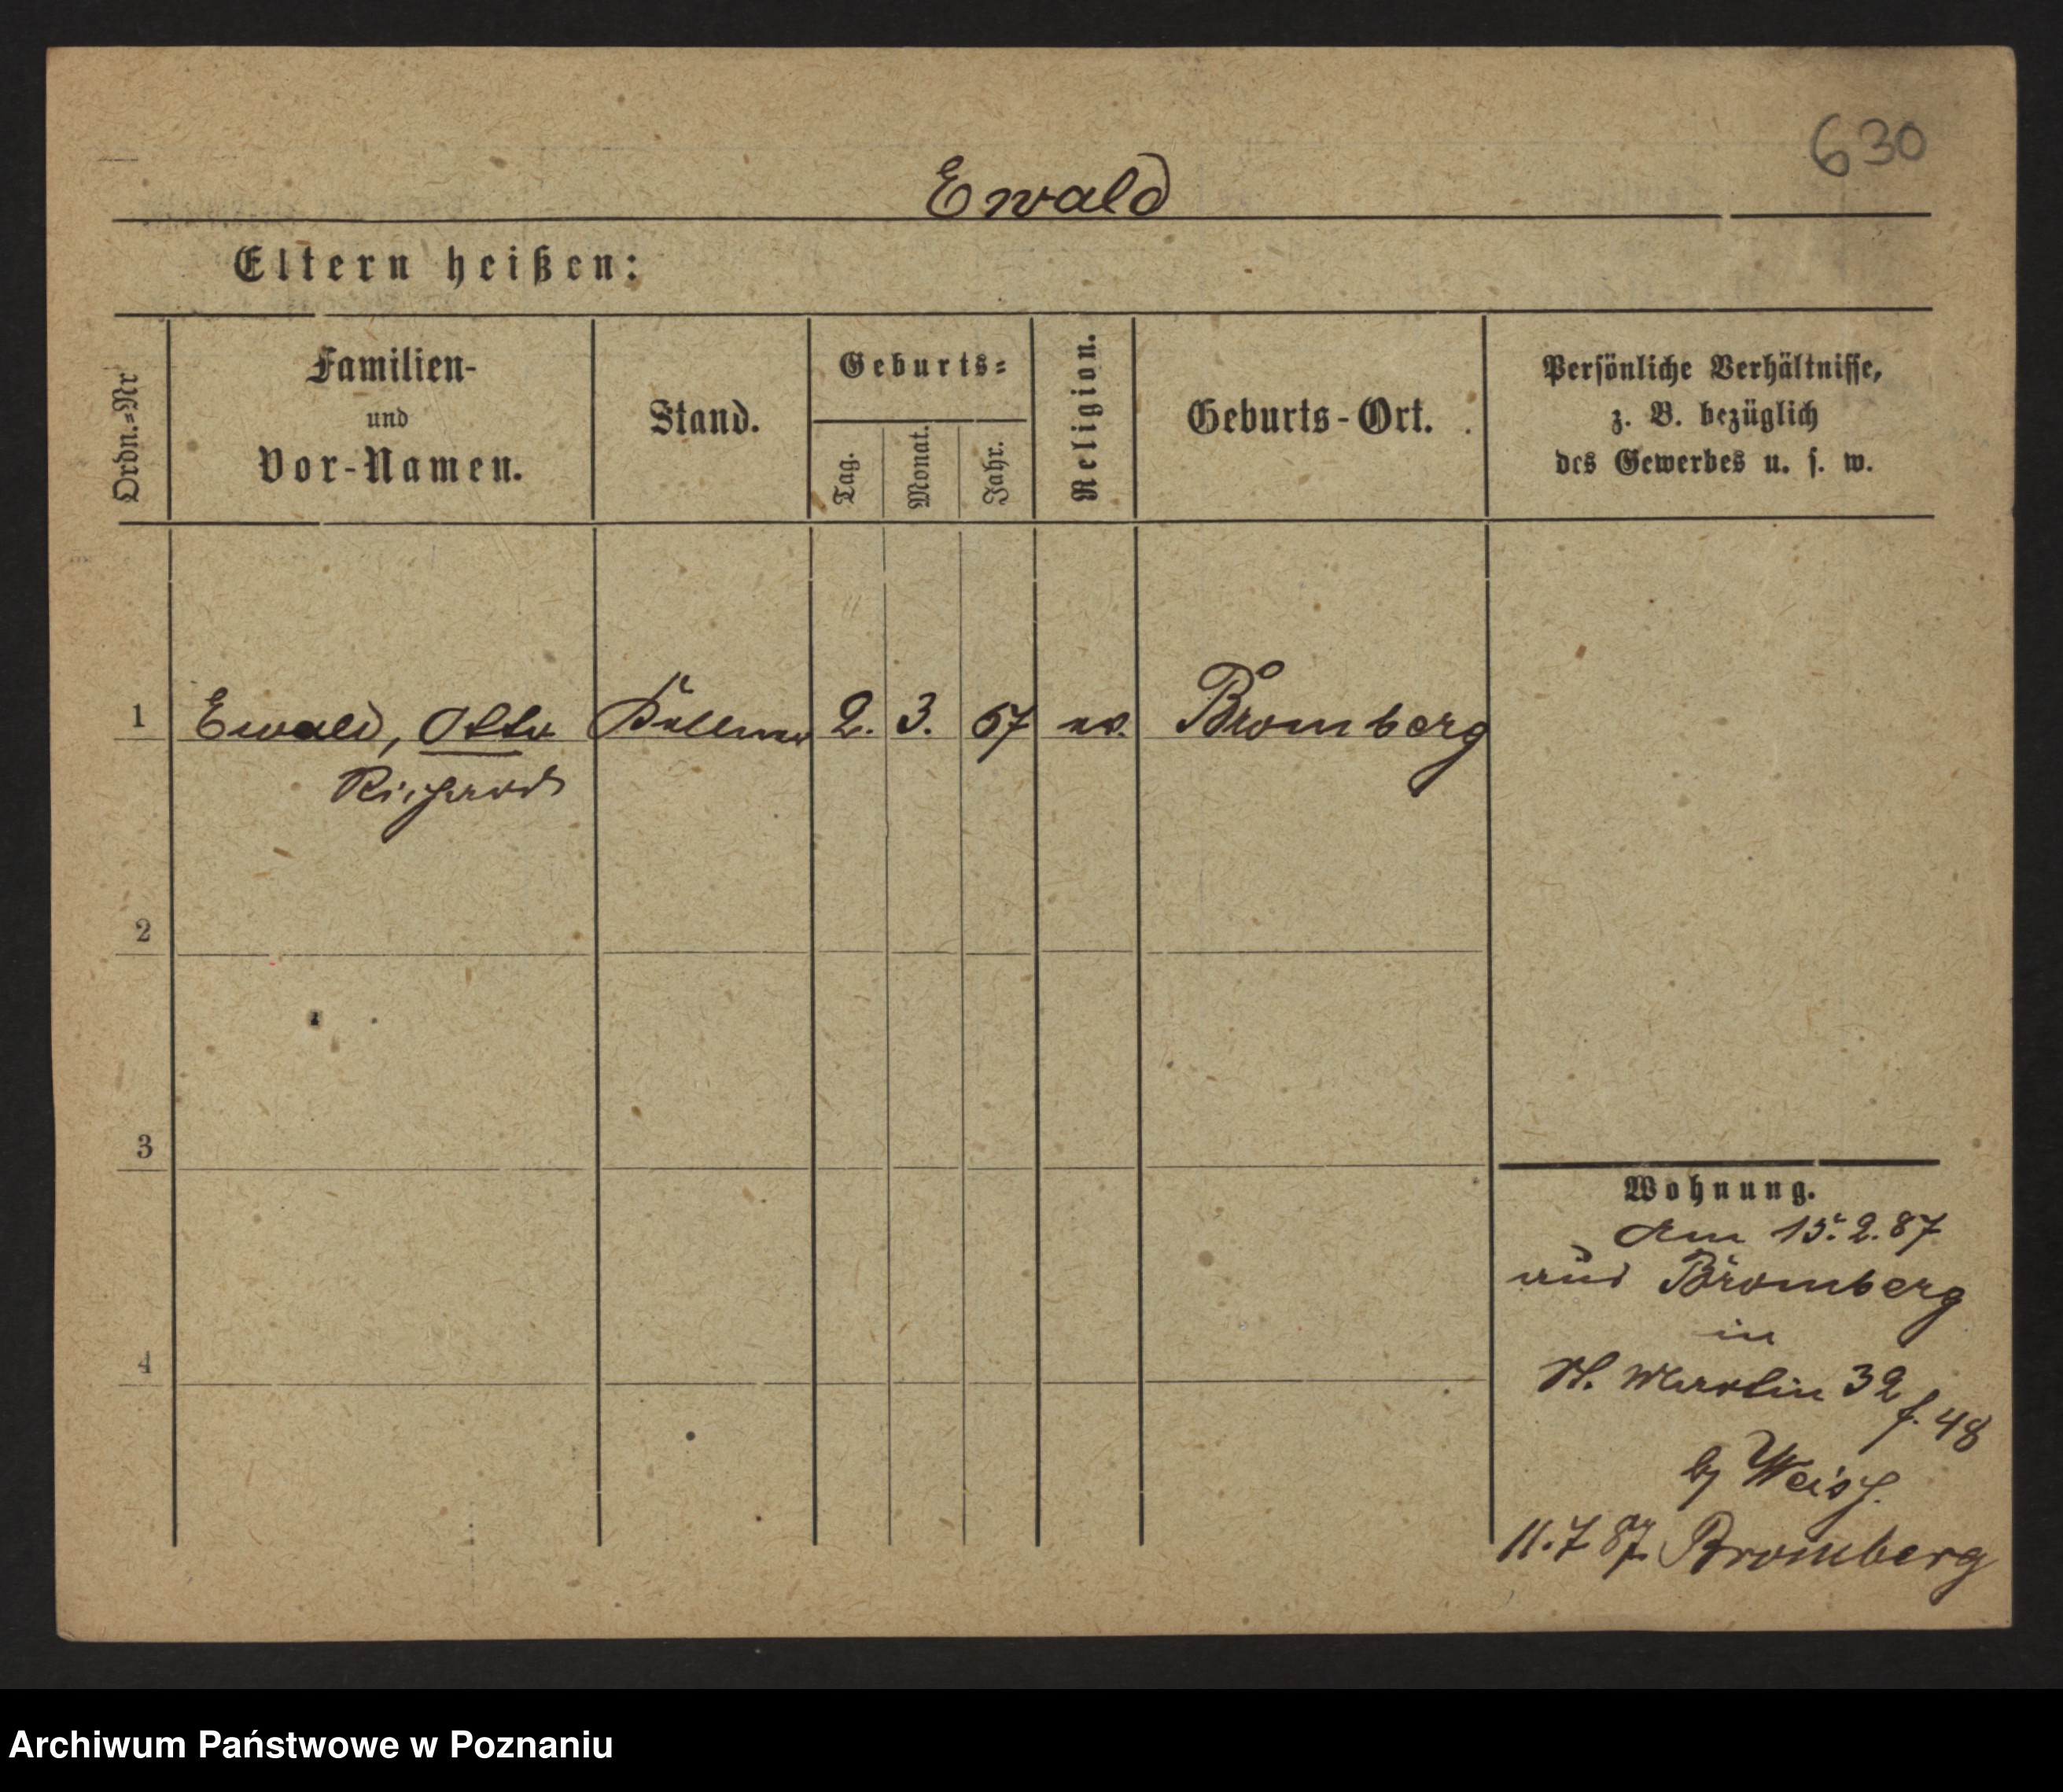 630
Ewald
Eltern heißen:
Ordn.-Nr
Familien-
und
Vor-Namen.
Stand.
Geburts-
Tag.
Monat.
Jahr.
Religion.
Geburts-Ort.
Persönliche Verhältnisse,
z. B. bezüglich
des Gewerbes u. s. w.
1 Ewald, Otto Kellner 2. 3. 67 ev. Bromberg
Richard
2
3
4
Wohnung.
Am 15. 2. 87
aus Bromberg
in
St. Martin 32
f. 48
by Weiss.
11. 7 87. Bromberg
Archiwum Państwowe w Poznaniu